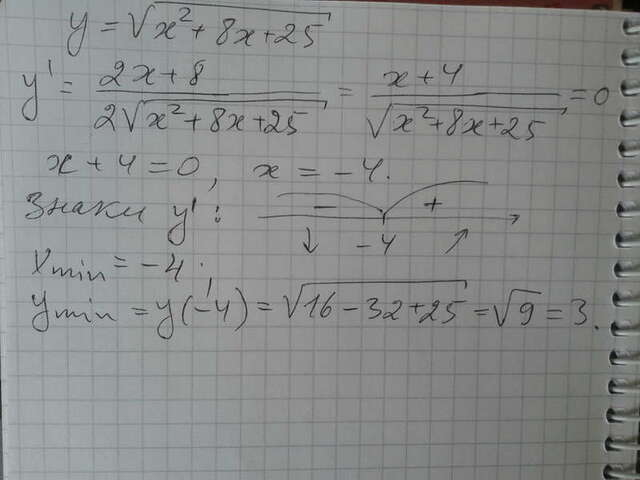 y = √(x² + 8x + 25)
y' = (2x + 8)/(2√(x² + 8x + 25)) = (x + 4)/√(x² + 8x + 25) = 0
x + 4 = 0, x = -4.
Знаки y': - +
↓ -4 ↗
xmin = -4;
ymin = y(-4) = √(16 - 32 + 25) = √9 = 3.